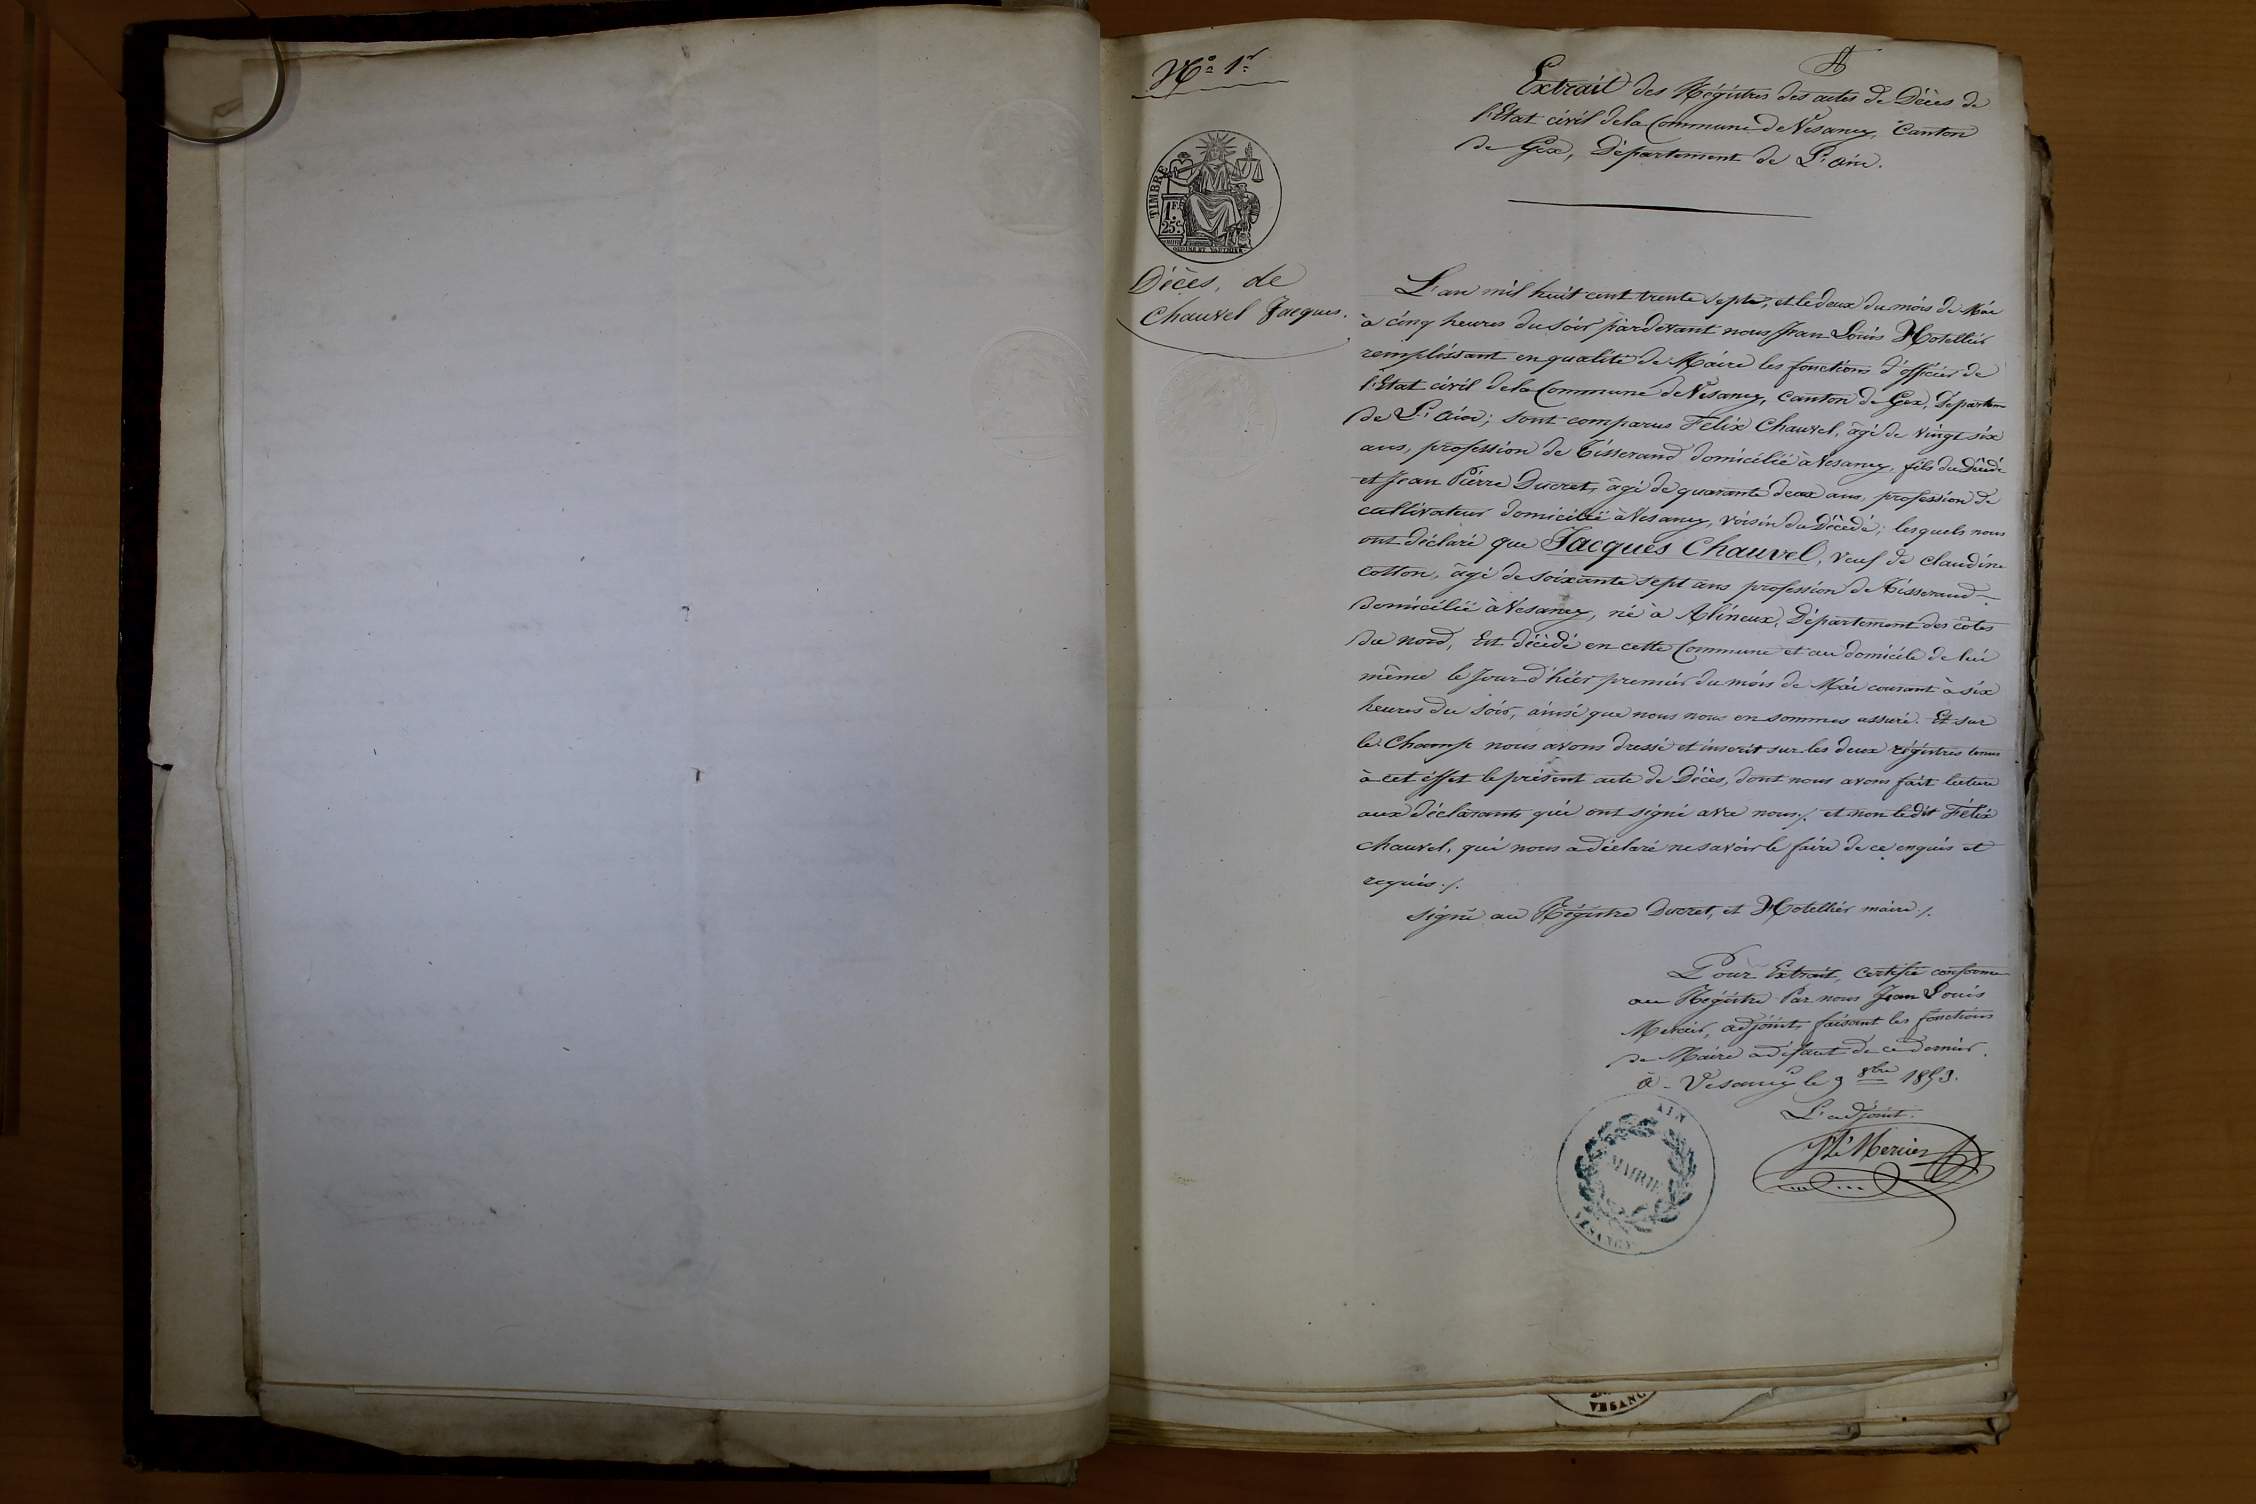 N° 1r
Extrait des Régistres des actes de Décès de
l'Etat civil de la Commune de Vesancy, Canton
de Gex, Département de L'ain.
TIMBRE
1F.
25c.
Décès, de
Chauvel Jacques.
L'an mil huit cent trente sept, et le deux du mois de Mai
à cinq heures du soir pardevant nous Jean Louis Hotellier
remplissant en qualité de Maire les fonctions d'officier de
l'Etat civil de la Commune de Vesancy, Canton de Gex, Départem
de L'ain; sont comparus Felix Chauvel, âgé de vingt six
ans, profession de Tisserand domicilié à Vesancy, fils du Décédé
et Jean Pierre Ducret, âgé de quarante deux ans, profession de
cultivateur domicilié à Vesancy, voisin du Décédé; lesquels nous
ont déclaré que Jacques Chauvel, veuf de Claudine
Cotton, âgé de soixante sept ans profession de Tisserand
domicilié à Vesancy, né à Alineux, Département des côtes
du nord, Est décédé en cette Commune et au domicile de lui
même le Jour d'hier premier du mois de Mai courant à six
heures du soir, ainsi que nous nous en sommes assuré. Et sur
le Champ nous avons dressé et inscrit sur les deux régistres tenus
à cet effet le présent acte de Décès, dont nous avons fait lecture
aux déclarants qui ont signé avec nous ./. et non ledit Félix
Chauvel, qui nous a déclaré ne savoir le faire de ce enquis et
requis ./.
signé au Régistre Ducret, et Hotellier maire ./.
Pour Extrait, certifié conforme
au Régistre Par nous Jean Louis
Mercier, adjoint, faisant les fonctions
de Maire à défaut de ce dernier.
à - Vesancy le 9 8bre 1853.
L'adjoint.
JLs Mercier
AIN
MAIRIE
VESANCY
VESANC